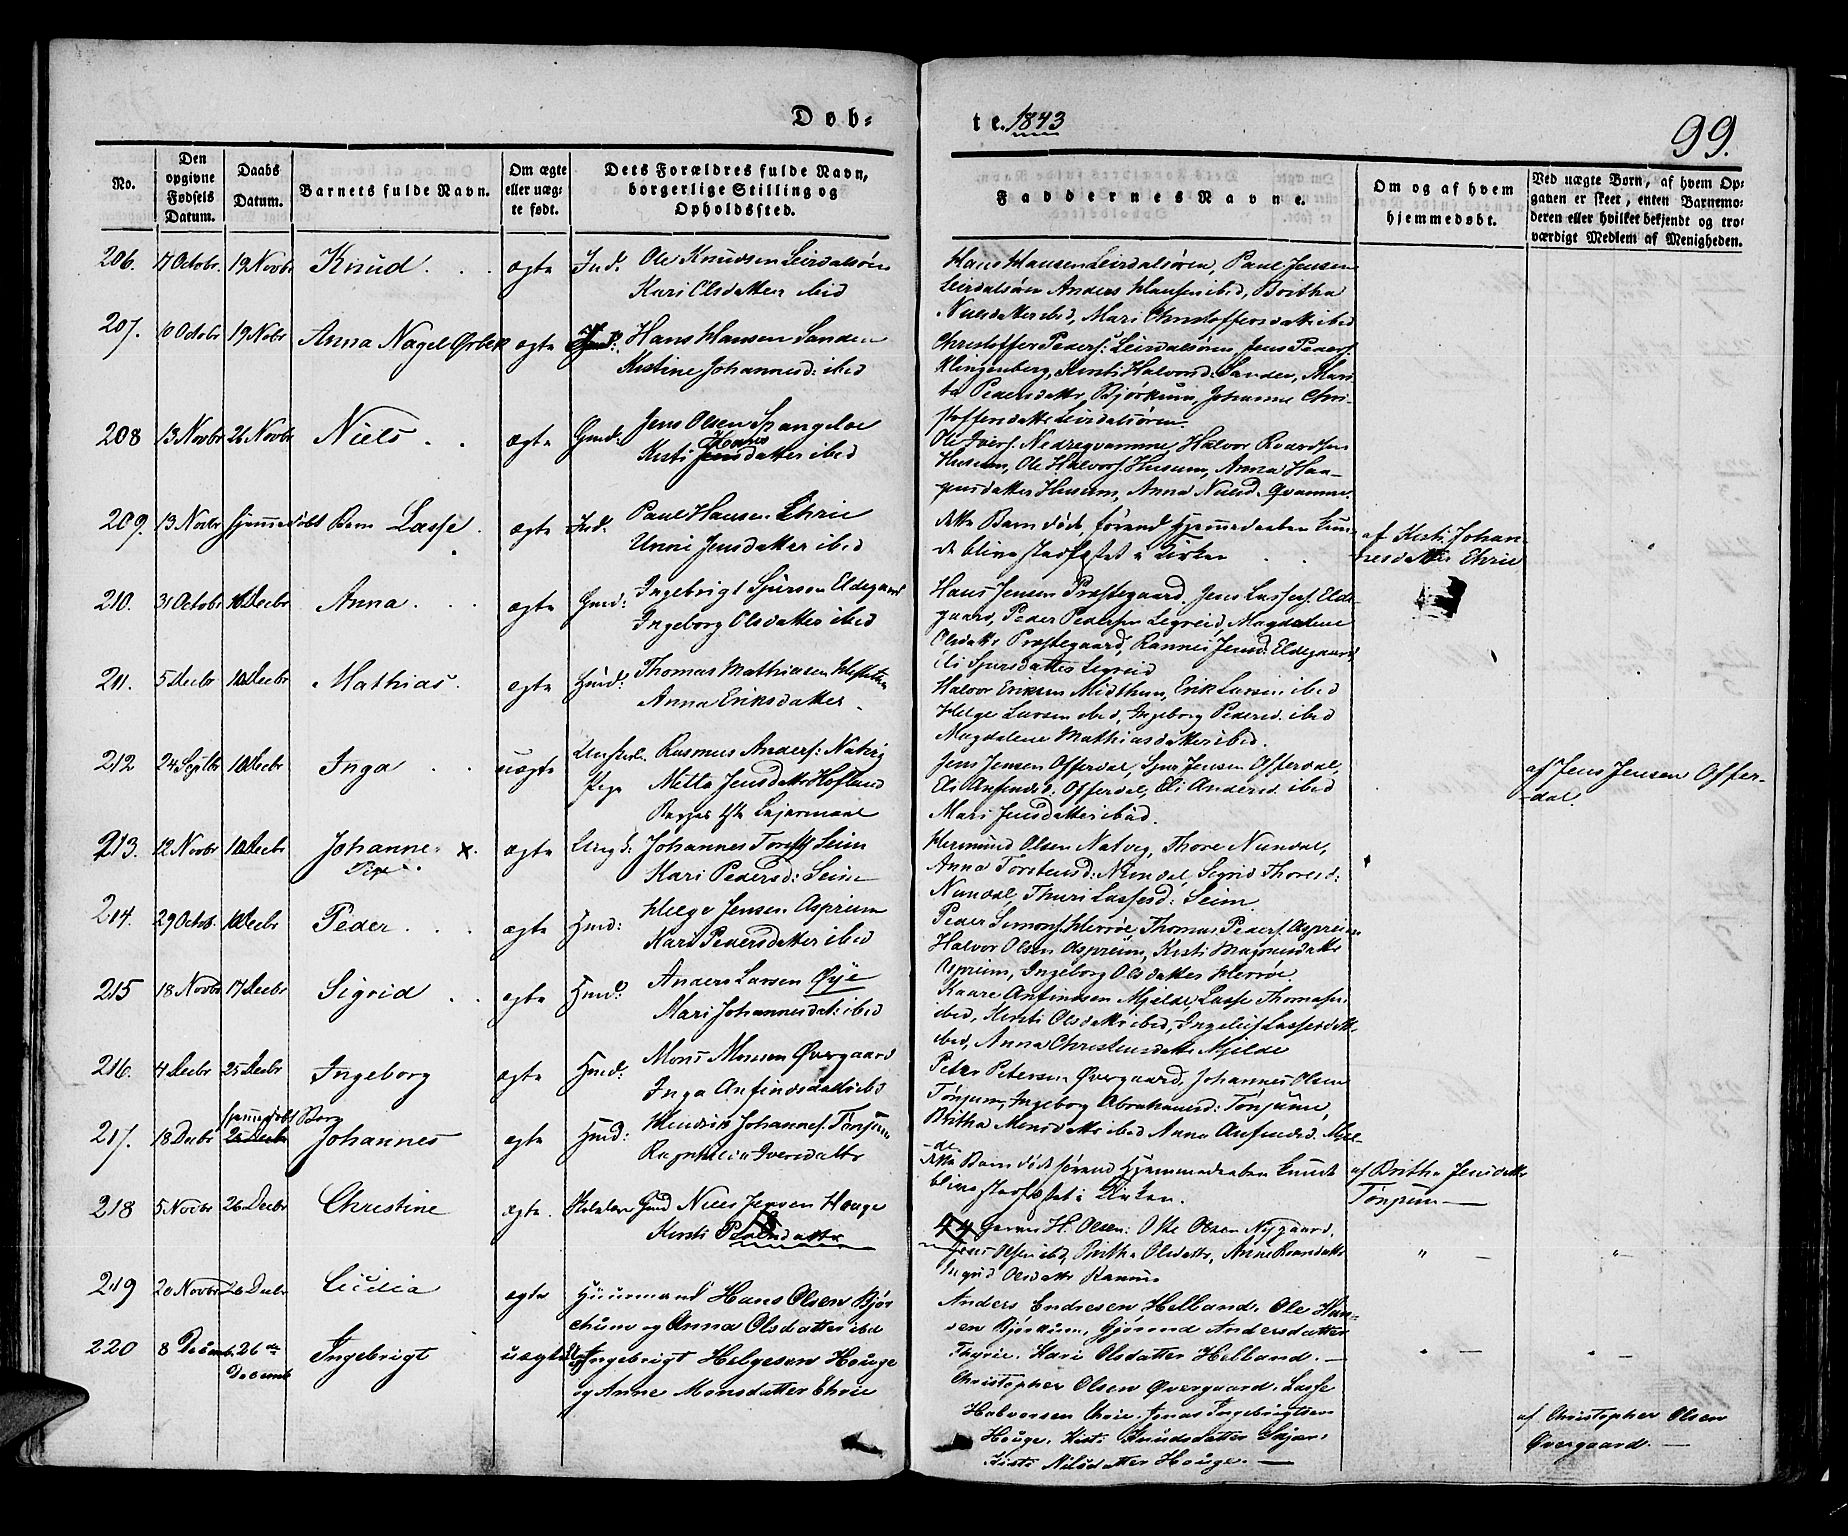 Døb-
te. 1843
99.
No.
Den opgivne Fødsels Datum.
Daabs Datum.
Barnets fulde Navn.
Om ægte eller uæg-te født.
Dets Forældres fulde Navn, borgerlige Stilling og Opholdssted.
Faddernes Navne.
Om og af hvem hjemmedøbt.
Ved uægte Børn, af hvem Op-gaven er skeet, enten Barnemo-deren eller hvilket bekjendt og tro-værdigt Medlem af Menigheden.
206. 17 Octobr 19 Novbr Knud ægte Ind. Ole Knudsen Leirdalsøren
Kari Olsdatter ibid
Hans Hansen Leirdalsøren, Paul Jensen
Leirdalsøren Anders Hansen ibid, Britha
Nielsdatter ibid, Mari Christoffersdattr ibid
207. 10 Octobr 19 Nobr Anna Nagel ægte Hans Hansen Sanden
Kirstine Johannesd: ibid
Christoffer Peders: Leirdalsøren Jens Peders:
Klingenberg, Kirsti Halvorsd: Sanden, Mari-
ta Pedersdattr, Bjørkum, Johanne Chri-
stoffersdattr Leirdalsøren.
208 13 Novbr 26 Novbr Niels ægte Gmd: Jens Olsen Spangeloe
Kirsti datter ibid
Ole Ivers. Nedreqvamme, Halvor
Husum, Ole Halvors. Husum, Anna Haa-
gensdatter Husum, Anna Nielsd. Qvamme.
209. 13 Novbr hjemmedøbt Barn Lasse ægte Ind. Paul Hansen Ehrie
Unni Jensdatter ibid
dette Barn døde, førend Hjemmedaaben kun-
de blive stadfæstet i Kirken
af Kirsti Johan-
nesdatter Ehrie
210. 31 Octobr 10 Decbr Anna ægte Gmd: Ingebrigt Sjursen Eldegaard
Ingeborg Olsdatter ibid
Hans Jensen Præstegaard. Jens Lassess. Elde-
gaard, Peder Pedersen Legreid, Magdalene
Olsdattr Præstegaard, Rannei Jensd: Eldegaard,
Eli Sjursdatter Legreid
211. 5 Decbr 10 Decbr Mathias. ægte Hmd: Thomas Mathiasen
Anna Eriksdatter
Halvor Eriksen Midthun, Erik Larsen ibid
Helge Larsen ibid, Ingeborg Pedersd. ibid
Magdalene Mathiasdatter ibid.
212 24 Septbr 10 Decbr Inga uægte Rasmus Anders: Natvig
Pige Mette Jensdattr Hofland
Leiermaal
Jens Jensen Offerdal, Sjur Jensen Offerdal,
Eli Anfindsd: Offerdal, Eli Andersd. ibid
Mari Jensdatter ibid.
af Jens Jensen Offer-
-dal.
213. 12 Novbr 10 Decbr Johanne x. ægte Johannes Seim
Pige Kari Pedersd: Seim
Hermund Olsen Natvig, Thore Nundal,
Anna Torstensd: Nundal, Sigrid Thoresd:
Nundal, Thuri Lassesd: Seim.
214. 29 Octob. 10 Decbr Peder ægte Hmd: Helge Jensen Asprium
Kari Pedersdatter ibid
Peder Simons. Herrøe, Thomas Peders. Asprium
Halvor Olsen Asprium, Kirsti Magnusdattr
Asprium, Ingeborg Olsdatter Herrøe
215 18 Novbr 17 Decbr Sigrid ægte Hmd: Anders Larsen Øye
Mari Johannesdat: ibid
Kaare Anfindsen Mjelde, Lasse Thomassen
ibid, Kirsti Olsdattr ibid, Lassesdattr
ibid, Anna Christensdattr Mjelde
216. 4 Decbr 25 Decbr Ingeborg ægte Hmd: Mons Monsen Øvergaard
Inga Anfindsdattr ibid
Peter Petersen Øvergaard, Johannes Olsen
Tønjum, Ingeborg Abrahamsd: Tønjum,
Britha Monsdattr ibid Anna Anfindsd. Mjel-
de
hjemmedøbt Barn
217. 18 Decbr 25 Decbr Johannes ægte Hmd: Hendrik Johannes. Tønjum
Ragnhilda Iversdattr
dette Barn døde førend Hjemmedaaben kunde
blive stadfæstet i Kirken.
af Britha Jensdattr
Tønjum —
218 5 Novbr 26 Decbr Christine ægte. Gmd Niels Jensen Hauge
Kirsti datter
H. Olsen: Ole Olsen Nygaard,
Jens Olsen ibid, Britha Olsdattr, Anne
Olsdattr
" — " —
219 20 Novbr 26 Decbr Cicilia ægte Huusmand Hans Olsen Bjør
chum og Anna Olsdatter ibid
Anders Endresen Helland. Ole Han-
sen Bjørkum, Gjørond Andersdatter
Thyrie. Kari Olsdatter Helland. —
" — " —
220 8 Decemb. 26de Decemb Ingebrigt uægte Ingebrigt Helgesen Houge
og Anne Monsdatter Ehrie
Christopher Olsen Øvergaard. Lasse
Halvorsen Ehrie. Jonas Ingebrigtsen
Houge. Kisti Knudsdatter Skjær.
Kisti Nilsdatter Houge. —
af Christopher Olsen
Øvergaard. —